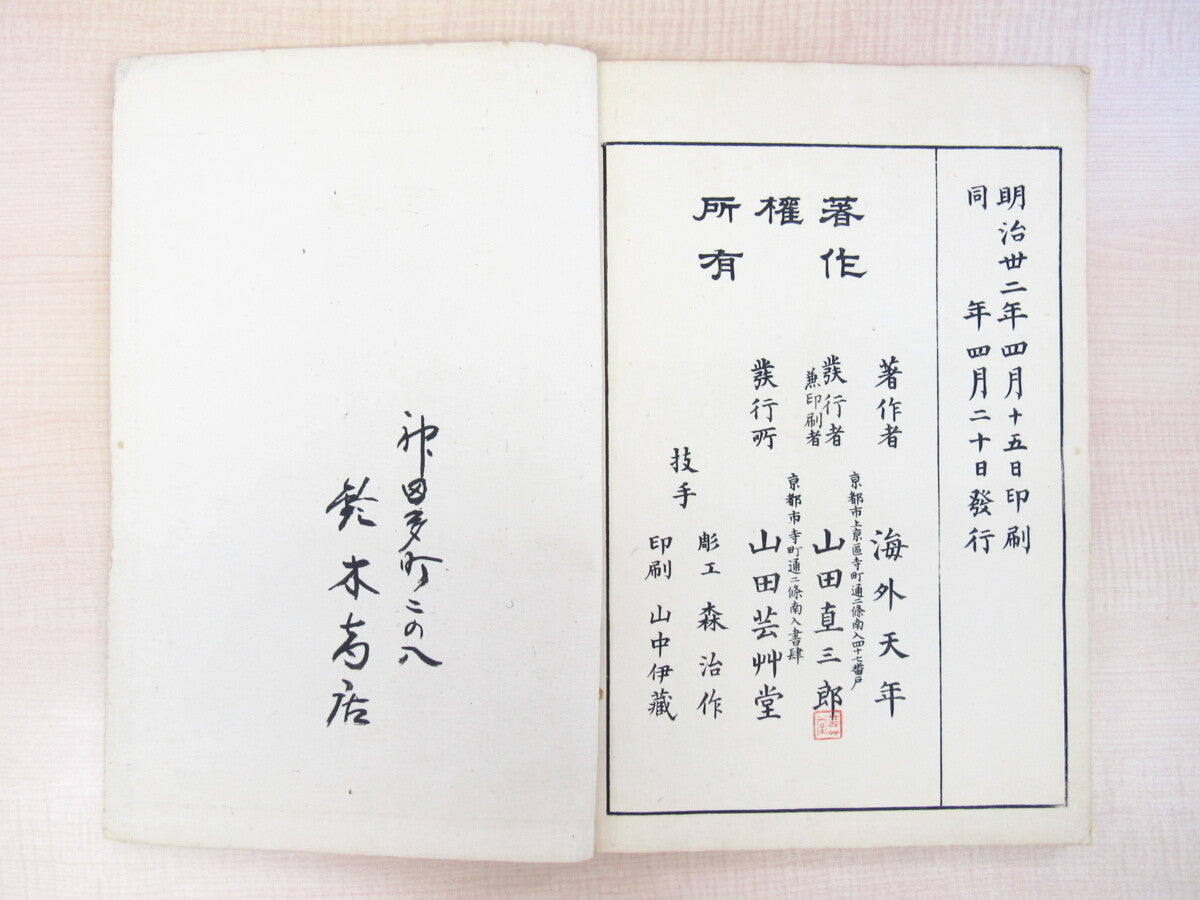 明治丗二年四月十五日印刷
同　年四月二十日發行
著作
權
所有
著作者　海外天年
京都市上京區寺町通二條南入四十七番戸
發行者
兼印刷者
山田直三郎
京都市寺町通二條南入書肆
發行所　山田芸艸堂
技手
彫工　森治作
印刷　山中伊藏
神田多町二の八
鈴木商店